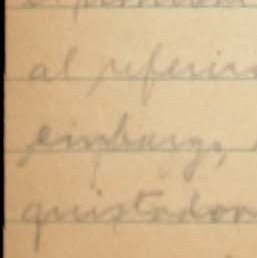 al referir
embargo,
quistador